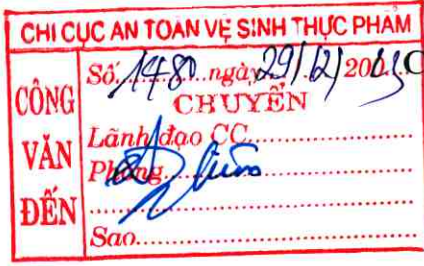 CHI CỤC AN TOÀN VỆ SINH THỰC PHẨM
CÔNG VĂN ĐẾN
Số 1480 ngày 29/12/20
CHUYỂN
Lãnh đạo CC
Phòng
Sao